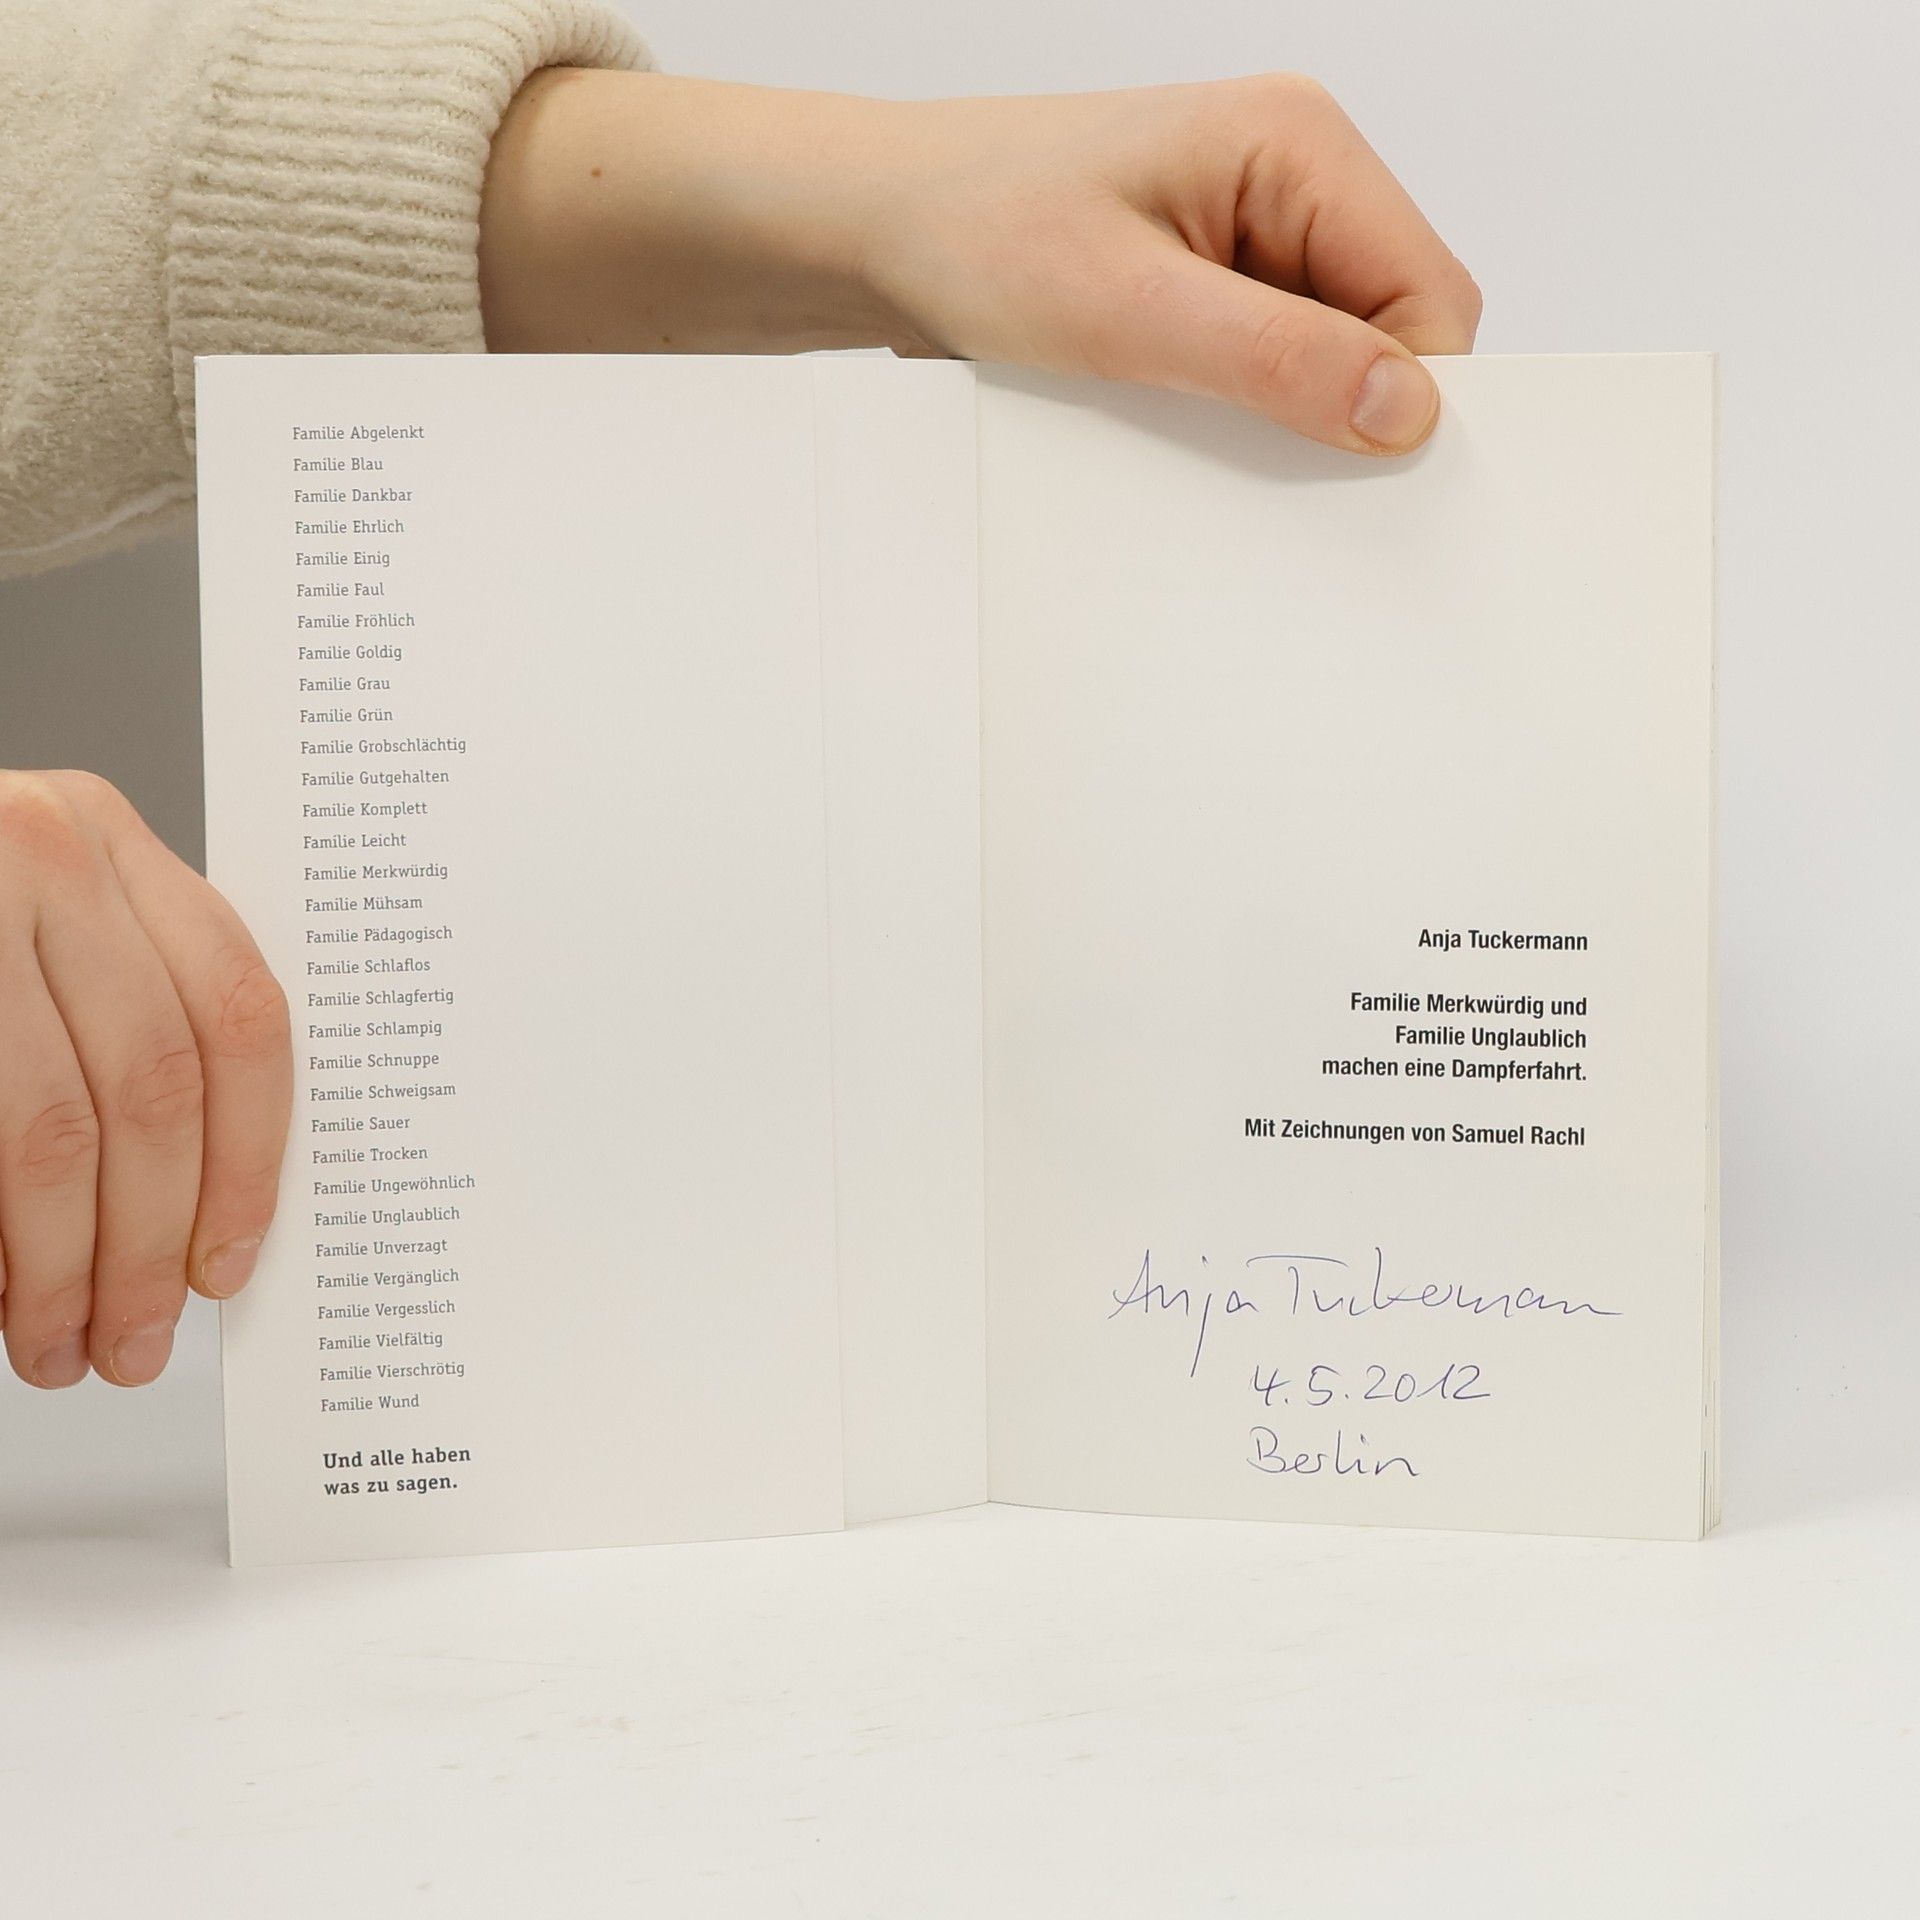 Familie Abgelenkt
Familie Blau
Familie Dankbar
Familie Ehrlich
Familie Einig
Familie Faul
Familie Fröhlich
Familie Goldig
Familie Grau
Familie Grün
Familie Grobschlächtig
Familie Gutgehalten
Familie Komplett
Familie Leicht
Familie Merkwürdig
Familie Mühsam
Familie Pädagogisch
Familie Schlaflos
Familie Schlagfertig
Familie Schlampig
Familie Schnuppe
Familie Schweigsam
Familie Sauer
Familie Trocken
Familie Ungewöhnlich
Familie Unglaublich
Familie Unverzagt
Familie Vergänglich
Familie Vergesslich
Familie Vielfältig
Familie Vierschrötig
Familie Wund
Und alle haben
was zu sagen.
Anja Tuckermann
Familie Merkwürdig und
Familie Unglaublich
machen eine Dampferfahrt.
Mit Zeichnungen von Samuel Rachl
Anja Tuckermann
4.5.2012
Berlin